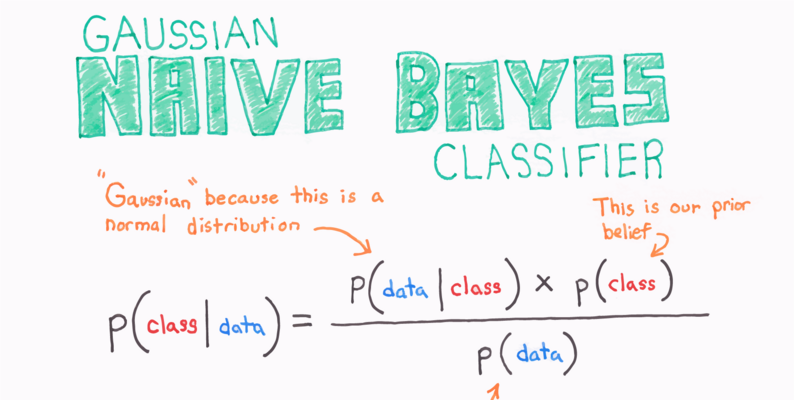 GAUSSIAN
NAIVE BAYES
CLASSIFIER
"Gaussian" because this is a
normal distribution
This is our prior
belief
P(data|class) × P(class)
P(class|data) =
P(data)